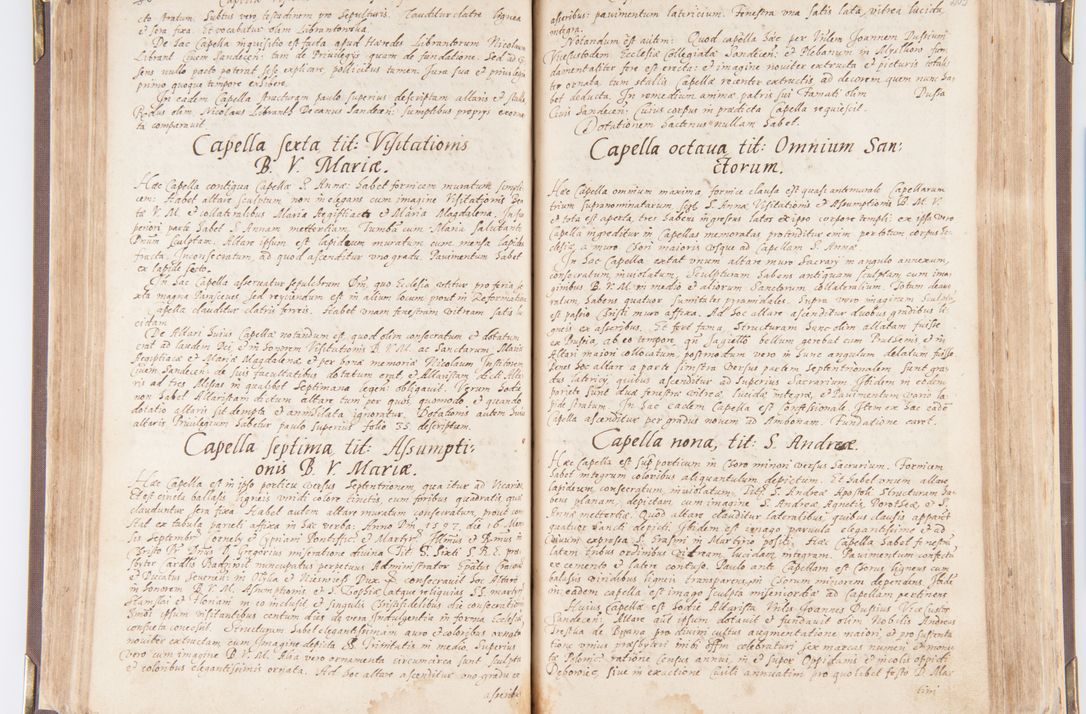 cto stratum. Subtus vero testudinem pro sepulturis. Clauditur clatro lignea
et sera fixa. Et vocabatur olim Librantonica.
De hac Capella inquisitio est facta apud Hæredes Librantorum Nicolaum
Librant Ciuem Sandecen: tam de Priuilegijs quam de fundatione. Sed ad
sens nullo pacto poterat sese explicare pollicitus tamen Jura sua et priuilegia
primo quoque tempore exhibere.
In eadem Capella structuram paulo superius descriptam altaris et stalla
Rndus olim Nicolaus Libranth Decanus Sandecen: sumptibus proprijs exorna
ta comparauit.
Capella sexta tit: Visitationis
B. V. Mariæ.
Hæc Capella contigua Capellæ S. Annæ habet fornicem muratum simpli
cem: Habet altare sculptum non inelegans cum imagine Visitationis Bea
tæ V. M. et collateralibus Maria Aegiptiaca et Maria Magdalena. In su
periori parte habet S. Annam mettertiam. Tumba cum Maria salutante
Dnum sculptam. Altare ipsum est lapideum muratum cum mensa lapidea
fracta. Inconsecratum, ad quod ascenditur vno gradu. Pauimentum habet
ex lapide secto.
In hac Capella asseruatur sepulchrum Dni, quo Ecclesia vtitur pro feria se
xta magna Parasceues, sed reijciendum est in alium locum prout in Reformatione
Capella clauditur clatris ferreis. Habet vnam fenestram vitream satis lu
cidam.
De Altari huius Capellæ notandum est, quod olim consecratum et dotatum
erat ad laudem Dei, et in honorem Visitationis B. V. M. ac Sanctarum Mariæ
Aegiptiacæ et Mariæ Magdalenæ et per bonæ memoriæ Nicolaum Institorem
Ciuem Sandecen: de suis facultatibus dotatum erat, et Altaristam dicti Alta
ris ad tres Missas in qualibet Septimana legen: obligauit. Verum hodie
non habet Altaristam dictum altare tum per quos quomodo et quando
dotatio altaris sit dempta et annihilata ignoratur. Dotationis autem huius
altaris Priuilegium habetur paulo superius folio 55. descriptam.
Capella septima tit: Assumpti-
onis B. V. Mariæ.
Hæc Capella est in ipso porticu versus Septentrionem, qua itur ad Vicarios
Et est cincta ballasis ligneis viridi colore tinctis, cum foribus quadratis, quæ
clauduntur sera fixa. Habet autem altare muratum consecratum, prout con
stat ex tabula parieti affixa in hæc verba: Anno Dni 1597. die 16 Men
sis Septembr. Cornely et Cypriani Pontificis et Martyr: Illmus et Rmus in
Christo Pr Dnus D. Gregorius miseratione diuina Tit. S. Sixti S. R. E. pres
byter Cardlis Radziuil nuncupatus perpetuus Administrator Epatus Cracoui:
et Ducatus Seuerien: in Olyka et Nieswiesz Dux consecrauit hoc Altare
in honorem B. V. M. Assumptionis et S. Sophiæ atque reliquias SS. martyr
Stanislai et Floriani in eo inclusit, et singulis Christifidelibus die consecration
huius ipsum visitantibus centum dies de vera Indulgentia in forma Ecclesiæ
consueta concessit. Structuram habet elegantissimam auro et coloribus ornata
nouiter extructam cum Imagine depicta SS Trinitatis in medio. Superius
vero cum imagine B. V. M. Alia vero ornamenta circumcirca sunt sculpta
et coloribus elegantissimis ornata. Ad hoc altare ascenditur vno gradu ex
asseribus
asseribus: pauimentum latericium. Fenestra vna satis lata, vitrea lucida
integra.
Notandum est autem: Quod capella hæc per Vtlem Joannem Dussium
Vicecustodem Ecclesiæ Collegiatæ Sandecen: et Plebanum in Mystkow fun
damentaliter fere est erecta: et imagine nouiter extructa et picturis totali
ter ornata, tum stallis Capellæ recenter extructis ad decorem quem nunc ha
bet deducta. In remedium animæ patris sui Famati olim Dussa
Ciuis Sandecen: Cuius corpus in prædicta Capella requiescit.
Dotationem hactenus nullam habet.
Capella octaua tit: Omnium San:
ctorum.
Hæc Capella omnium maxima, fornice clausa est quasi antimurale Capellarum
trium supranominatarum scil: S. Annæ Visitationis et Assumptionis B. M. V.
et tota est aperta, tres habens ingressus latos ex ipso corpore templi: ex ipsa vero
Capella ingreditur in Capellas memoratas protenditur enim per totum corpus Ec
clesiæ, a muro Chori maioris vsque ad Capellam S. Annæ.
In hac Capella extat vnum altare muro Sacrarij in angulo annexum,
consecratum, inuiolatum, Sculpturam habens antiquam sculptam cum ima
ginibus B. V. M. in medio et aliorum Sanctorum collateralium. Totum deau
ratum, habens quatuor sumitates pyramidales. Supra vero imaginem sculpta
est passio Christi muro affixa. Ad hoc altare ascenditur duobus gradibus li
gneis ex asseribus. Et fert fama, Structuram hanc olim allatam fuisse
ex Prussia, ab eo tempore quo Jagiello bellum gerebat cum Prutsenis et in
Altari maiori collocatum, postmodum vero in hunc angulum delatum fuisse.
Penes hoc altare a parte sinistra versus partem Septentrionalem sunt gra
dus latericij, quibus ascenditur ad superius Sacrarium. Ibidem in eodem
pariete sunt duæ fenestræ vitreæ lucidæ integræ, et Pauimentum vario la
pide stratum. In hac eadem Capella est Confessionale. Item ex hac eade
Capella ascenditur per gradus nouem ad Ambonam. Fundatione caret.
Capella nona, tit: S Andreæ.
Hæc Capella est sup porticum in Choro minori versus Sacrarium. Fornicem
habet integrum coloribus aliquantulum depictum. Et habet vnum altare
lapideum, consecratum, inuiolatum. Titl: S. Andreæ Apostoli Structuram ha
bens planam, depictam cum imagine S. Andreæ, Agnetis, Dorotheæ et S.
Annæ mettertiæ. Quod altare clauditur lateralibus, quibus clausis apparent
quatuor sancti depicti. Ibidem est imago paruula elegantissime et ad
viuum expressa S. Erasmi in Martyrio positi. Hæc Capella habet fenestra
latam tribus ordinibus vitream, lucidam integram. Pauimentum confectu
ex cemento et latere contuso. Paulo ante Capellam est Chorus ligneus cum
balasijs viridibus ligneis transparens, in Chorum minorem dependens. Ibide
in eadem capella est imago sculpta misericordiæ ad Capellam pertinens.
Huius Capellæ est hodie Altarista Vtlis Joannes Dussius Vice Custos
Sandecen: Altare aut ipsum dotauit et fundauit olim Nobilis Andreas
Irestua de Bruna pro diuini cultus augmentatione maiori et pro sustenta
tione vnius presbyteri inibi offm celebraturi sex marcas numeri et mone
tæ Polonic: ratione census annui, in et super Oppidum et incolis oppidi
Debouiec, siue in exactione ciuili annuatim pro quolibet festo B. Mar
tini